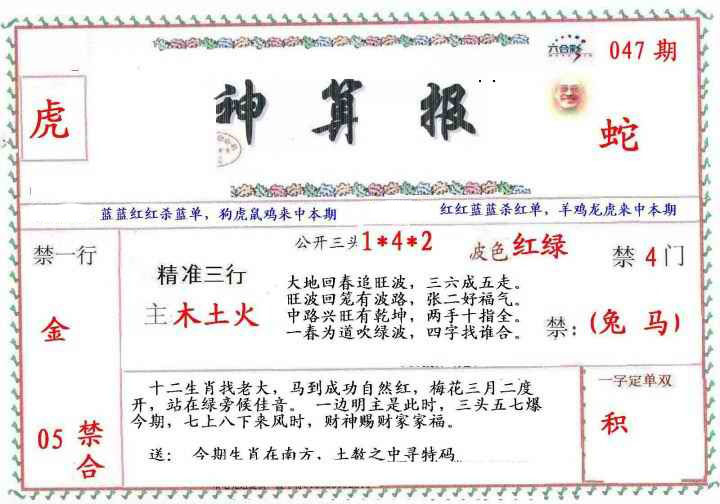 六合彩
047 期
虎
神算报
蛇
蓝蓝红红杀蓝单，狗虎鼠鸡来中本期
红红蓝蓝杀红单，羊鸡龙虎来中本期
禁一行
金
05 禁合
公开三头1*4*2
波色红绿
精准三行
主木土火
大地回春追旺波，三六成五走。
旺波回笼有波路，张二好福气。
中路兴旺有乾坤，两手十指全。
一春为道吹绿波，四字找谁合。
禁 4 门
禁：(兔 马)
十二生肖找老大，马到成功自然红，梅花三月二度
开，站在绿旁候佳音。 一边明主是此时，三头五七爆
今期，七上八下来风时，财神赐财家家福。
送： 今期生肖在南方，土数之中寻特码
一字定单双
积